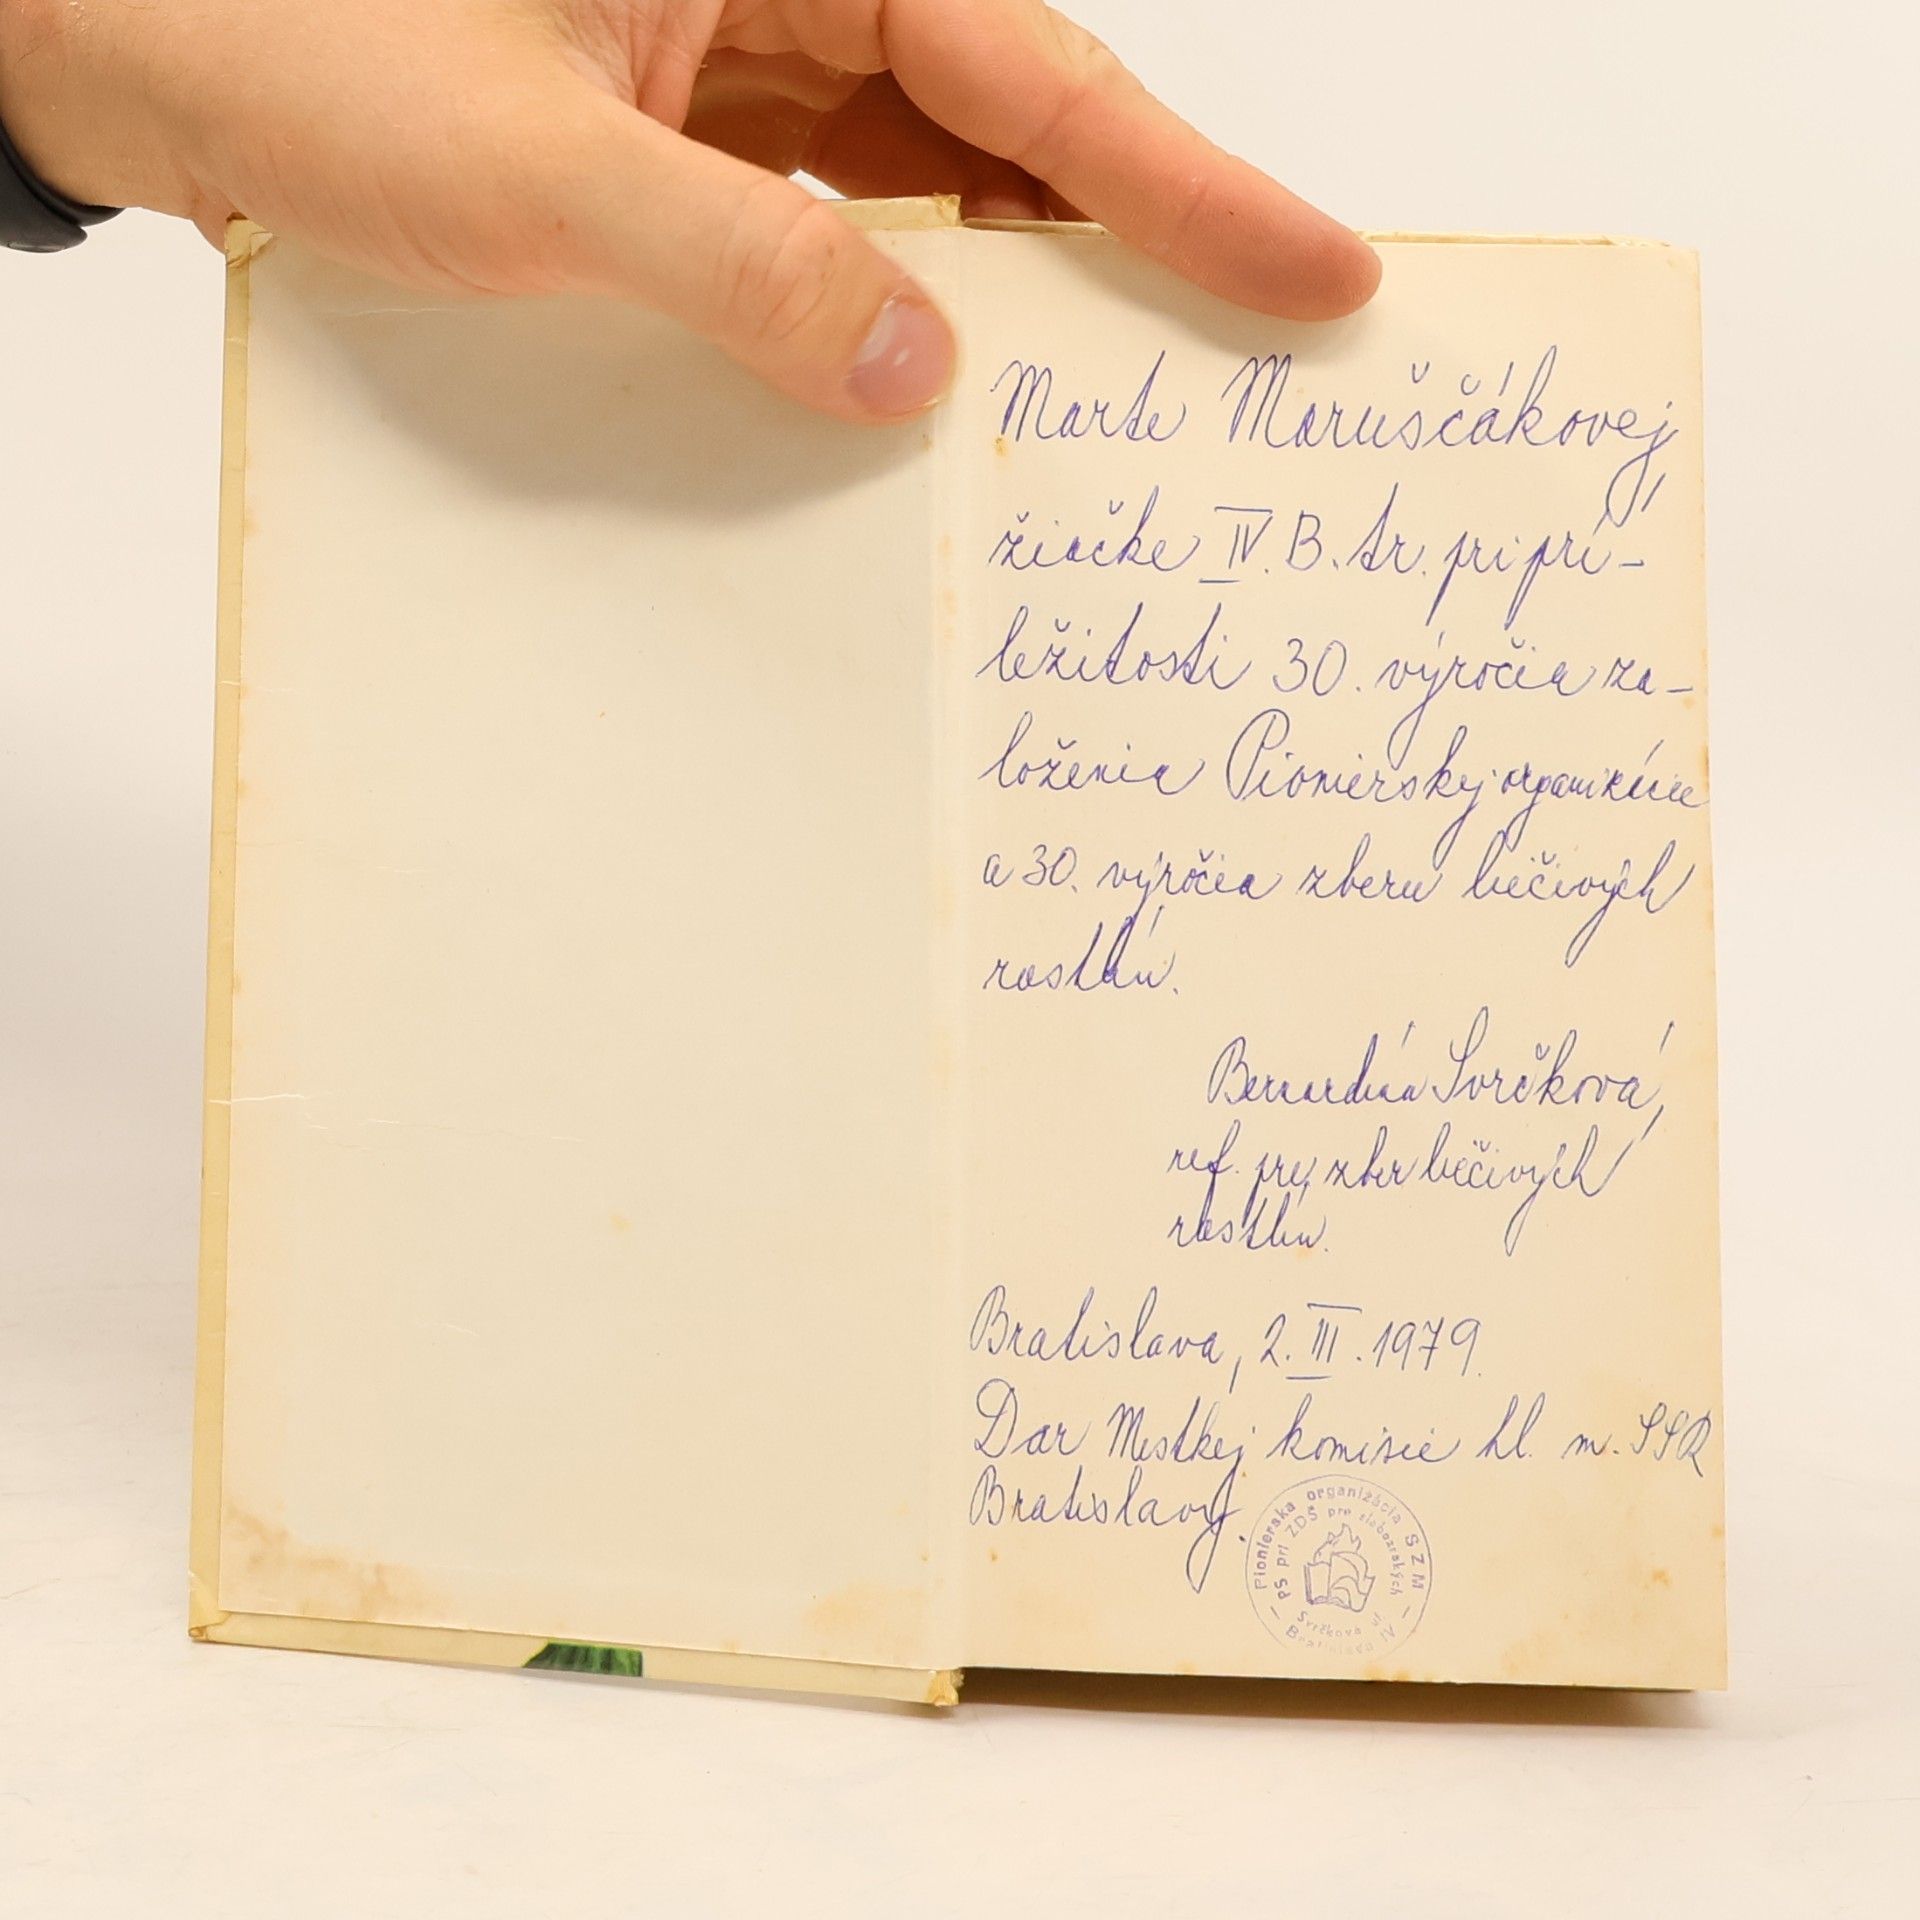 Marte Maruščákovej
žiačke IV. B. tr. pri prí-
ležitosti 30. výročia za-
loženia Pionierskej organizácie
a 30. výročia zberu liečivých
rastlín.
Bernardína Svrčková,
ref. pre zber liečivých
rastlín.
Bratislava, 2. III. 1979.
Dar Mestkej komisie hl. m. SSR
Bratislavy.
Pionierska organizácia SZM
PS pri ZDŠ pre slabozrakých
Svrčkova
Bratislava